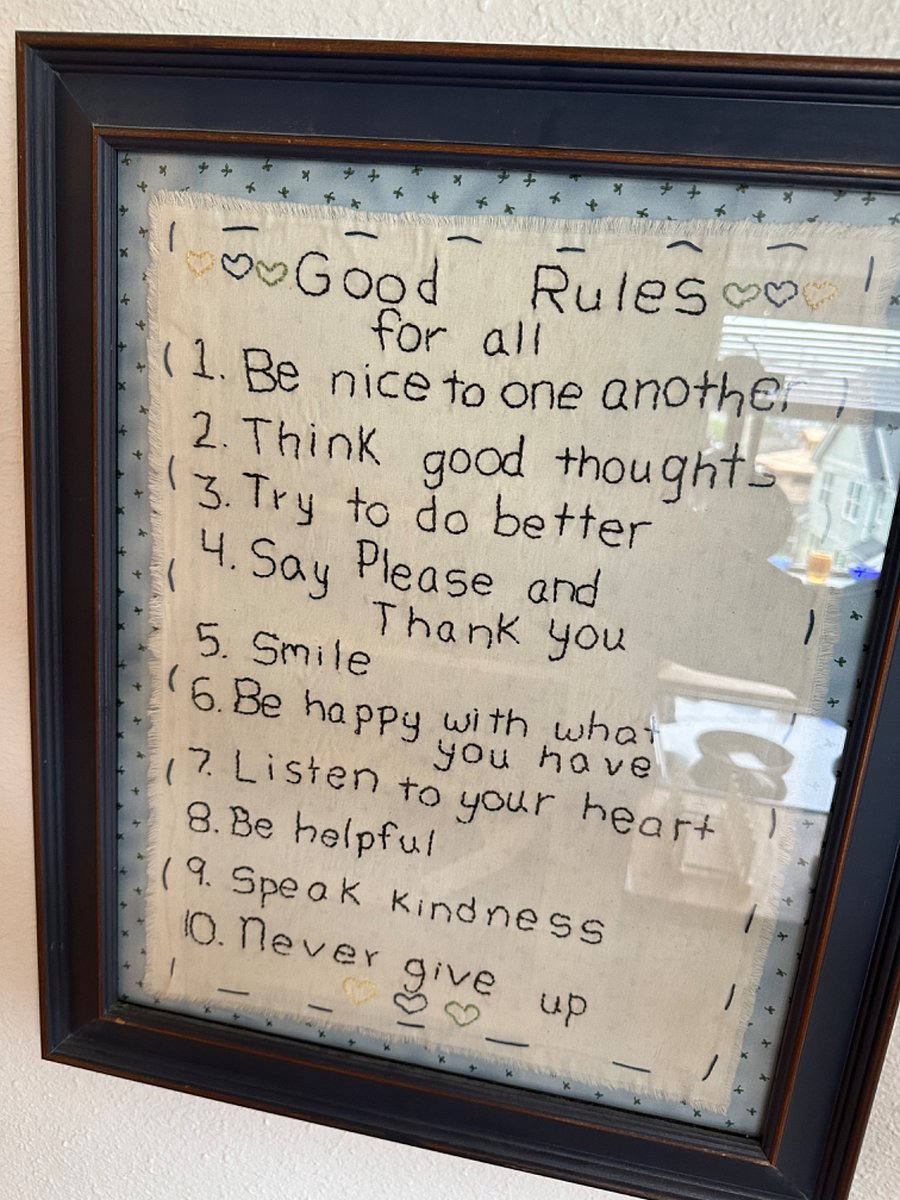 Good Rules
for all
1. Be nice to one another
2. Think good thoughts
3. Try to do better
4. Say Please and
Thank you
5. Smile
6. Be happy with what
you have
7. Listen to your heart
8. Be helpful
9. Speak kindness
10. Never give up